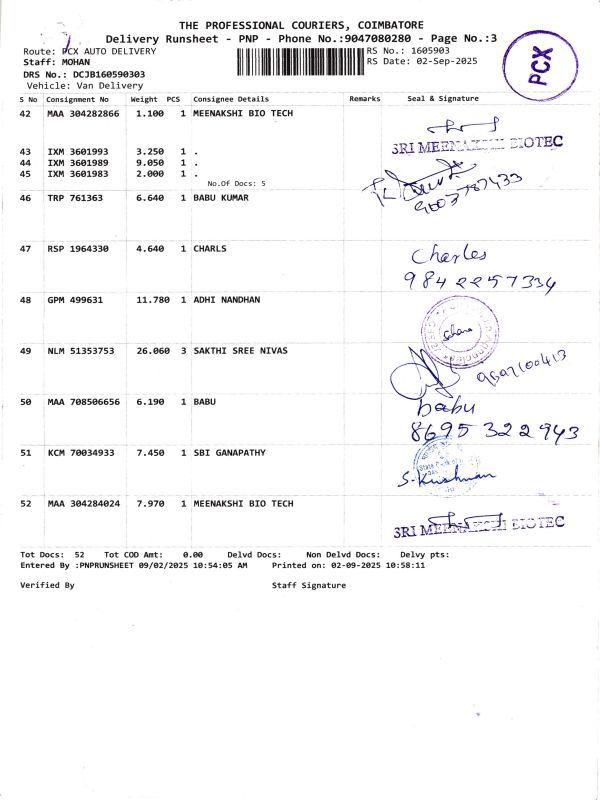 THE PROFESSIONAL COURIERS, COIMBATORE
Delivery Runsheet - PNP - Phone No.:9047080280 - Page No.:3
Route: PCX AUTO DELIVERY
RS No.: 1605903
Staff: MOHAN
RS Date: 02-Sep-2025
DRS No.: DCJB160590303
Vehicle: Van Delivery
PCX
S No Consignment No Weight PCS Consignee Details Remarks Seal & Signature
42 MAA 304282866 1.100 1 MEENAKSHI BIO TECH
SRI MEENAKSHI BIOTEC
43 IXM 3601993 3.250 1 .
44 IXM 3601989 9.050 1 .
45 IXM 3601983 2.000 1 .
No.Of Docs: 5
46 TRP 761363 6.640 1 BABU KUMAR
9003787433
47 RSP 1964330 4.640 1 CHARLS
Charles
9842257334
48 GPM 499631 11.780 1 ADHI NANDHAN
49 NLM 51353753 26.060 3 SAKTHI SREE NIVAS
50 MAA 708506656 6.190 1 BABU
babu
8695322943
51 KCM 70034933 7.450 1 SBI GANAPATHY
52 MAA 304284024 7.970 1 MEENAKSHI BIO TECH
SRI MEENAKSHI BIOTEC
Tot Docs: 52 Tot COD Amt: 0.00 Delvd Docs: Non Delvd Docs: Delvy pts:
Entered By :PNPRUNSHEET 09/02/2025 10:54:05 AM Printed on: 02-09-2025 10:58:11
Verified By Staff Signature